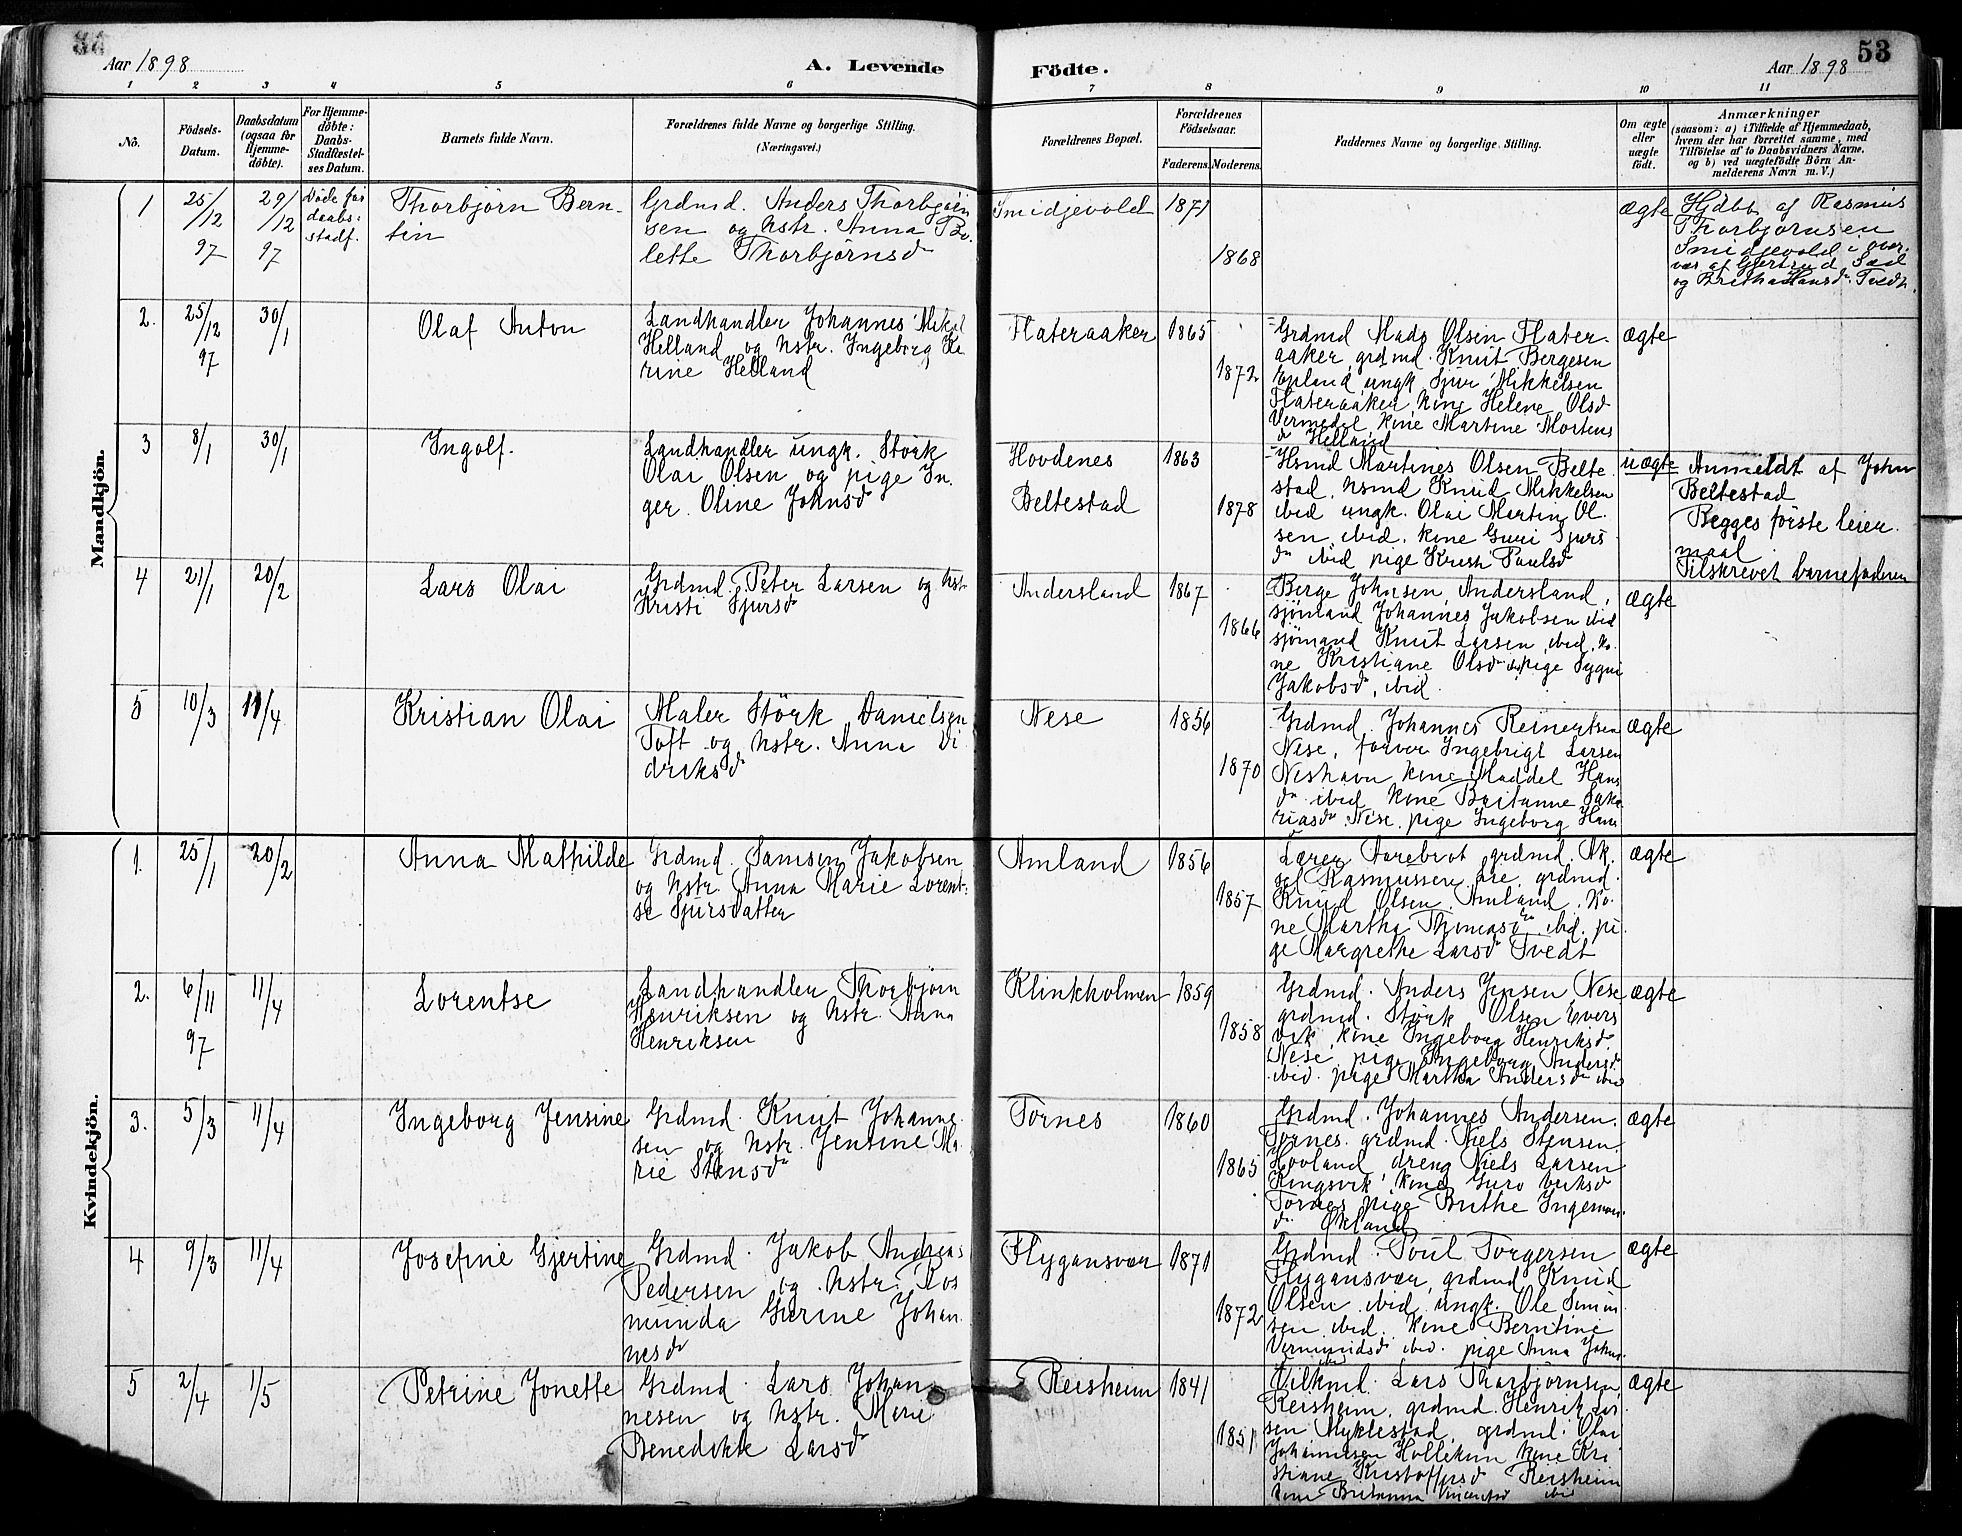 Aar 1898
A. Levende
Födte.
Aar 1898
53
1 2 3 4 5 6 7 8 9 10 11
No.
Födsels-
Datum.
Daabsdatum
(ogsaa for
Hjemme-
döbte).
For Hjemme-
döbte:
Daabs-
Stadfæstel-
ses Datum.
Barnets fulde Navn.
Forældrenes fulde Navne og borgerlige Stilling.
(Næringsvei.)
Forældrenes Bopæl.
Forældrenes
Födselsaar.
Faderens. Moderens.
Faddernes Navne og borgerlige Stilling.
Om ægte
eller
uægte
födt.
Anmærkninger
(saasom: a) i Tilfælde af Hjemmedaab,
hvem der har forrettet samme, med
Tilföielse af to Daabsvidners Navne,
og b) ved uægtefödte Börn An-
melderens Navn m. V.)
Mandkjön.
1
25/12 97
29/12 97
Döde før
daabs-
stadf.
Thorbjörn Bern-
tin
Grdmd. Anders Thorbjörn
sen og hstr. Anna Bo-
lette Thorbjörnsd
Smidjevold
1871
1868
ægte
Hjdbt af Rasmus
Thorbjörnsen
Smidjevold i over-
vær af Gjertrud
og Britha Hansd. Tvedt.
2.
25/12 97
30/1
Olaf Anton
Landhandler Johannes Mikal
Helland og hstr. Ingeborg Ka
rine Helland
Flateraaker
1865
1872
Grdmd Mads Olsen Flater-
aaker, grdmd. Knut Bergesen
Epland ungk. Sjur Mikkelsen
Flateraaker, kone Helene Olsd
Vermedal kone Martine Mortens
d Helland
ægte
3
8/1
30/1
Ingolf.
Landhandler ungk. Störk
Olai Olsen og pige In-
ger Oline Johnsd
Hovdenes
Beltestad
1863
1878
Hsmd Martines Olsen Belte-
stad, hsmd Knud Mikkelsen
ibid ungk. Olai Martin Ol-
sen, ibid. kone Guri Sjurs
d ibid pige Kristi Paulsd
uægte
Anmeldt af John
Beltestad
Begges förste leier-
maal
Tilskrevet barnefaderen
4
21/1
20/2
Lars Olai
Grdmd. Peter Larsen og hst-
Kristi Sjursd
Andersland
1867
1866
Berge Johnsen, Andersland,
sjömand Johannes Jakobsen ibid
sjömand Knut Larsen, ibid, ko-
ne Kristiane Olsd ibid pige Sygni
Jakobsd, ibid.
ægte
5
10/3
11/4
Kristian Olai
Maler Störk Danielsen
Toft og hstr. Anna Di-
driksd
Nese
1856
1870
Grdmd. Johannes Reinertsen
Nese, farver Ingebrigt Larsen
Neshavn, kone Maddel Hans
d ibid kone Britanne Saka
riasd Nese, pige Ingeborg Hans
ægte
Kvindekjön.
1.
25/1
20/2
Anna Mathilde
Grdmd. Samson Jakobsen
og hstr. Anna Marie Lorent-
se Sjursdatter
Amland
1856
1857
Lærer Aarebrot grdmd. Ak-
sel Rasmussen Are, grdmd.
Knud Olsen Amland, ko-
ne Martha Thomasd ibid. pi-
ge Margrethe Larsd Tvedt
ægte
2.
6/11 97
11/4
Lorentse
Landhandler Thorbjörn
Henriksen og hstr. Anna
Henriksen
Klinkholmen
1859
1858
Grdmd. Anders Jensen Nese
grdmd. Störk Olsen Evers
vik, kone Ingeborg Henriksd.
Nese, pige Ingeborg Andersd
ibid. pige Martha Andersd ibid
ægte
3.
5/3
11/4
Ingeborg Jensine
Grdmd. Knut Johanne-
sen og hstr. Jensine Ma
rie Stensd
Tornes
1860
1865
Grdmd. Johannes Andersen
Tornes. grdmd. Niels Stensen
Hovland, dreng Niels Larsen
Kongsvik, kone Guro Eriksd
Tornes pige Brithe Ingemon
d. Økland
ægte
4
9/3
11/4
Josefine Gjertine
Grdmd. Jakob Andreas
Pedersen og hstr. Ros
munda Gurine Johan-
nesd
Flygansvær
1871
1872
Grdmd. Poul Torgersen
Flygansvær, grdmd Knud
Olsen ibid, ungk. Ole Simon-
sen ibid. kone Berntine
Vermundsd ibid. pige Anna Johns-
ibid
ægte
5
2/4
1/5
Petrine Jonette
Grdmd. Lars Johan
nesen og hstr. Marie
Benedikte Larsd
Reisheim
1841
1851
Vilkmd. Lars Thorbjörnsen
Reisheim, grdmd. Henrik Lar
sen Myklestad, grdmd. Olai
Johannesen Hollekim kone Kri
stiane Kristoffersd Reisheim
kone Britanna Vincentsd ibid
ægte